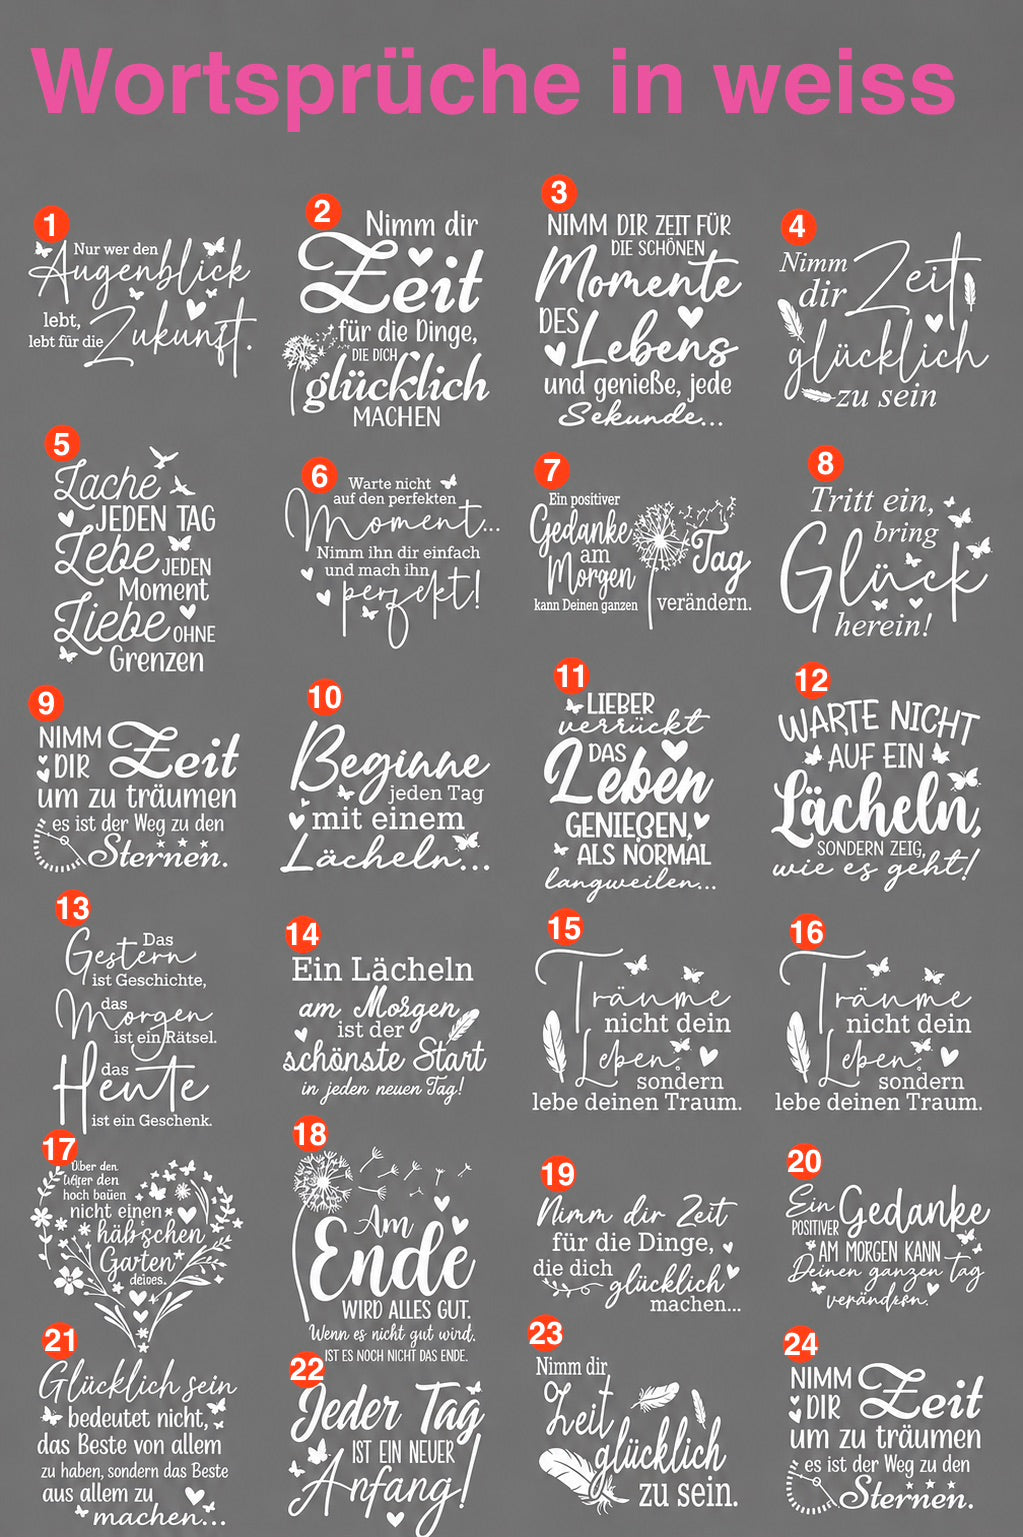 Wortsprüche in weiss
1
Nur wer den
Augenblick
lebt,
lebt für die
Zukunft.
2
Nimm dir
Zeit
für die Dinge,
DIE DICH
glücklich
MACHEN
3
NIMM DIR ZEIT FÜR
DIE SCHÖNEN
Momente
DES
Lebens
und genieße, jede
Sekunde...
4
Nimm
dir Zeit
glücklich
zu sein
5
Lache
JEDEN TAG
Lebe JEDEN
Moment
Liebe OHNE
Grenzen
6
Warte nicht
auf den perfekten
Moment...
Nimm ihn dir einfach
und mach ihn
perfekt!
7
Ein positiver
Gedanke
am
Morgen
kann Deinen ganzen
Tag
verändern.
8
Tritt ein,
bring
Glück
herein!
9
NIMM
DIR Zeit
um zu träumen
es ist der Weg zu den
Sternen.
10
Beginne
jeden Tag
mit einem
Lächeln...
11
LIEBER
verrückt
DAS
Leben
GENIEßEN,
ALS NORMAL
langweilen...
12
WARTE NICHT
AUF EIN
Lächeln,
SONDERN ZEIG,
wie es geht!
13
Das
Gestern
ist Geschichte,
das
Morgen
ist ein Rätsel.
das
Heute
ist ein Geschenk.
14
Ein Lächeln
am Morgen
ist der
schönste Start
in jeden neuen Tag!
15
Träume
nicht dein
Leben,
sondern
lebe deinen Traum.
16
Träume
nicht dein
Leben,
sondern
lebe deinen Traum.
17
Über den
hoch bauen
nicht einen
häbschen
Garten
18
Am
Ende
WIRD ALLES GUT.
Wenn es nicht gut wird.
IST ES NOCH NICHT DAS ENDE.
19
Nimm dir Zeit
für die Dinge,
die dich
glücklich
machen...
20
Ein
POSITIVER
Gedanke
AM MORGEN KANN
Deinen ganzen tag
verändern.
21
Glücklich sein
bedeutet nicht,
das Beste von allem
zu haben, sondern das Beste
aus allem zu
machen...
22
Jeder Tag
IST EIN NEUER
Anfang!
23
Nimm dir
Zeit
glücklich
zu sein.
24
NIMM
DIR Zeit
um zu träumen
es ist der Weg zu den
Sternen.